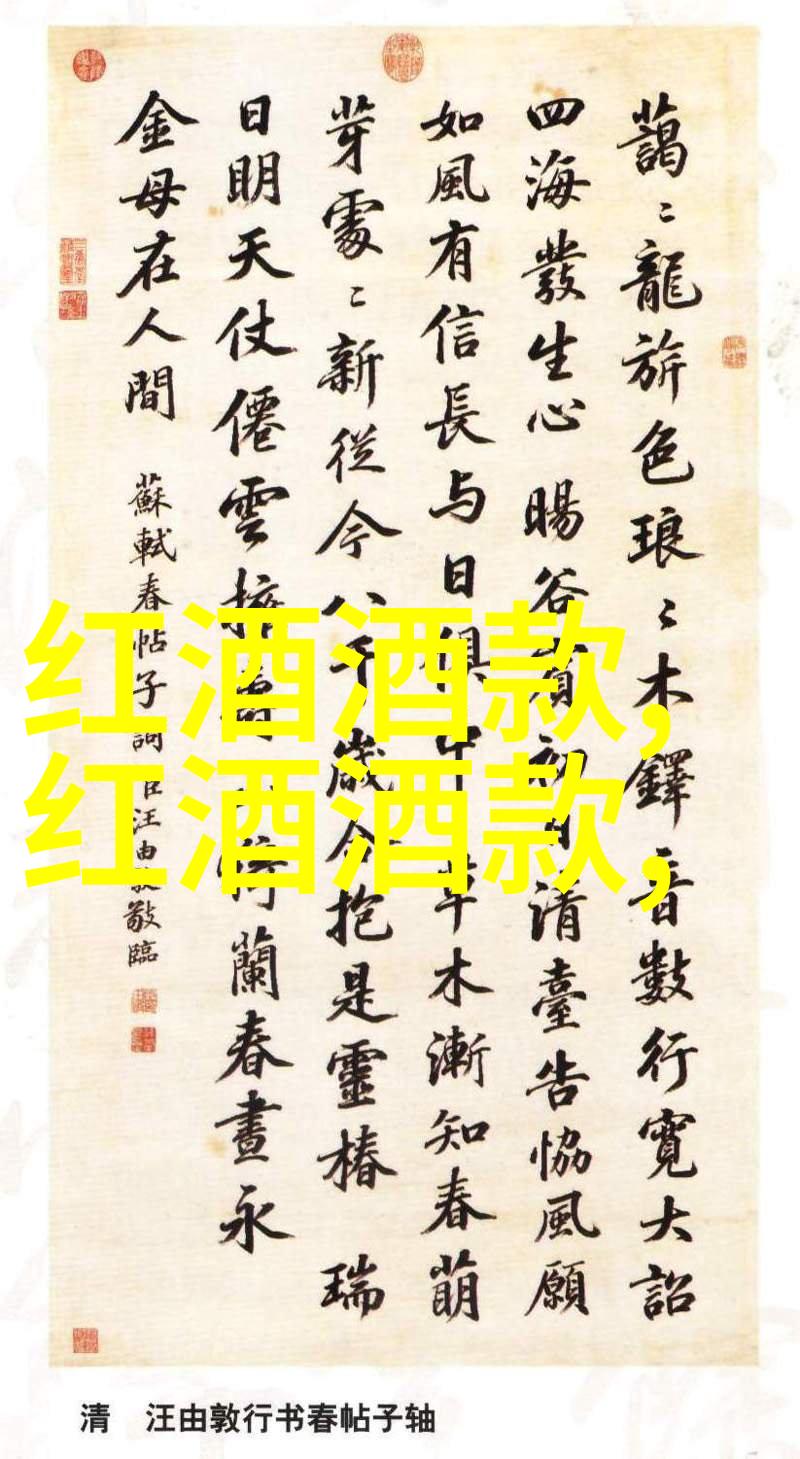 藹〻龍旂色琅〻木鐸音數行寬大詔
四海發生心 暘谷賓初日清臺告協風願
如風有信長与日俱中草木漸知春萌
芽處〻新從今八千歲合抱是靈椿 瑞
日明天仗僊雲擁壽山猗蘭春晝永
金母在人間
蘇軾春帖子詞 臣汪由敦敬臨
红酒酒款,
红酒酒款,
清 汪由敦行书春帖子轴